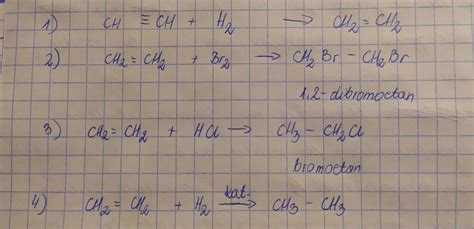 1) CH ≡ CH + H₂ → CH₂ = CH₂
2) CH₂ = CH₂ + Br₂ → CH₂Br – CH₂Br
1,2-dibromoetan
3) CH₂ = CH₂ + HCl → CH₃ – CH₂Cl
bromoetan
4) CH₂ = CH₂ + H₂ kat. → CH₃ – CH₃